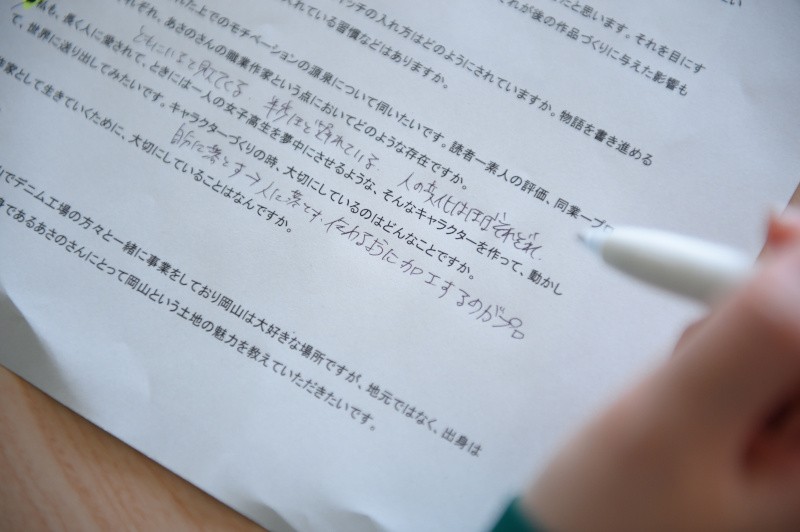 だと思います。それを目にす
れが後の作品づくりに与えた影響も
ンチの入れ方はどのようにされていますか。物語を書き進める
れている習慣などはありますか。
れた上でのモチベーションの源泉について伺いたいです。読者ー素人の評価、同業ープロ
れぞれ、あさのさんの職業作家という点においてどのような存在ですか。
人の文化はほぼそれぞれ
も、長く人に愛されて、ときには一人の女子高生を夢中にさせるような、そんなキャラクターを作って、動かし
て、世界に送り出してみたいです。キャラクターづくりの時、大切にしているのはどんなことですか。
に落とす→人に落とす、伝わるように加工するのがプロ
家として生きていくために、大切にしていることはなんですか。
でデニム工場の方々と一緒に事業をしており岡山は大好きな場所ですが、地元ではなく、出身は
身であるあさのさんにとって岡山という土地の魅力を教えていただきたいです。